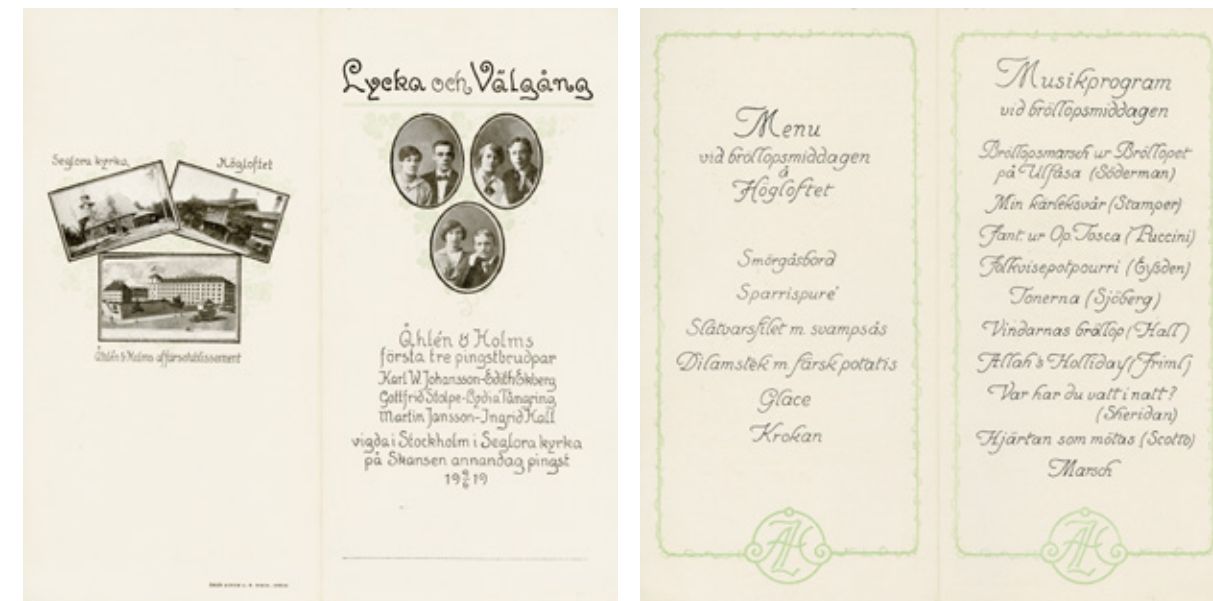 Seglora kyrka,
Högloftet
Åhlén & Holms affärsetablissement
Lycka och Välgång
Åhlén & Holms
första tre pingstbrudpar
Karl W. Johansson-Edith Ekberg
Gottfrid Stolpe-Lydia Tångring,
Martin Jansson-Ingrid Hall
vigda i Stockholm i Seglora kyrka
på Skansen annandag pingst
19 9/6 19
Menu
vid bröllopsmiddagen
å
Högloftet
Smörgåsbord
Sparrispuré
Slätvarsfilet m. svampsås
Dilamstek m färsk potatis
Glace
Krokan
AH
Musikprogram
vid bröllopsmiddagen
Bröllopsmarsch ur Bröllopet
på Ulfåsa (Söderman)
Min kärleksvår (Stamper)
Fant. ur Op. Tosca (Puccini)
Folkvisepotpourri (Eysden)
Tonerna (Sjöberg)
Vindarnas bröllop (Hall)
Allah's Holliday (Friml)
Var har du vatt i natt?
(Sheridan)
Hjärtan som mötas (Scotto)
Marsch
AH